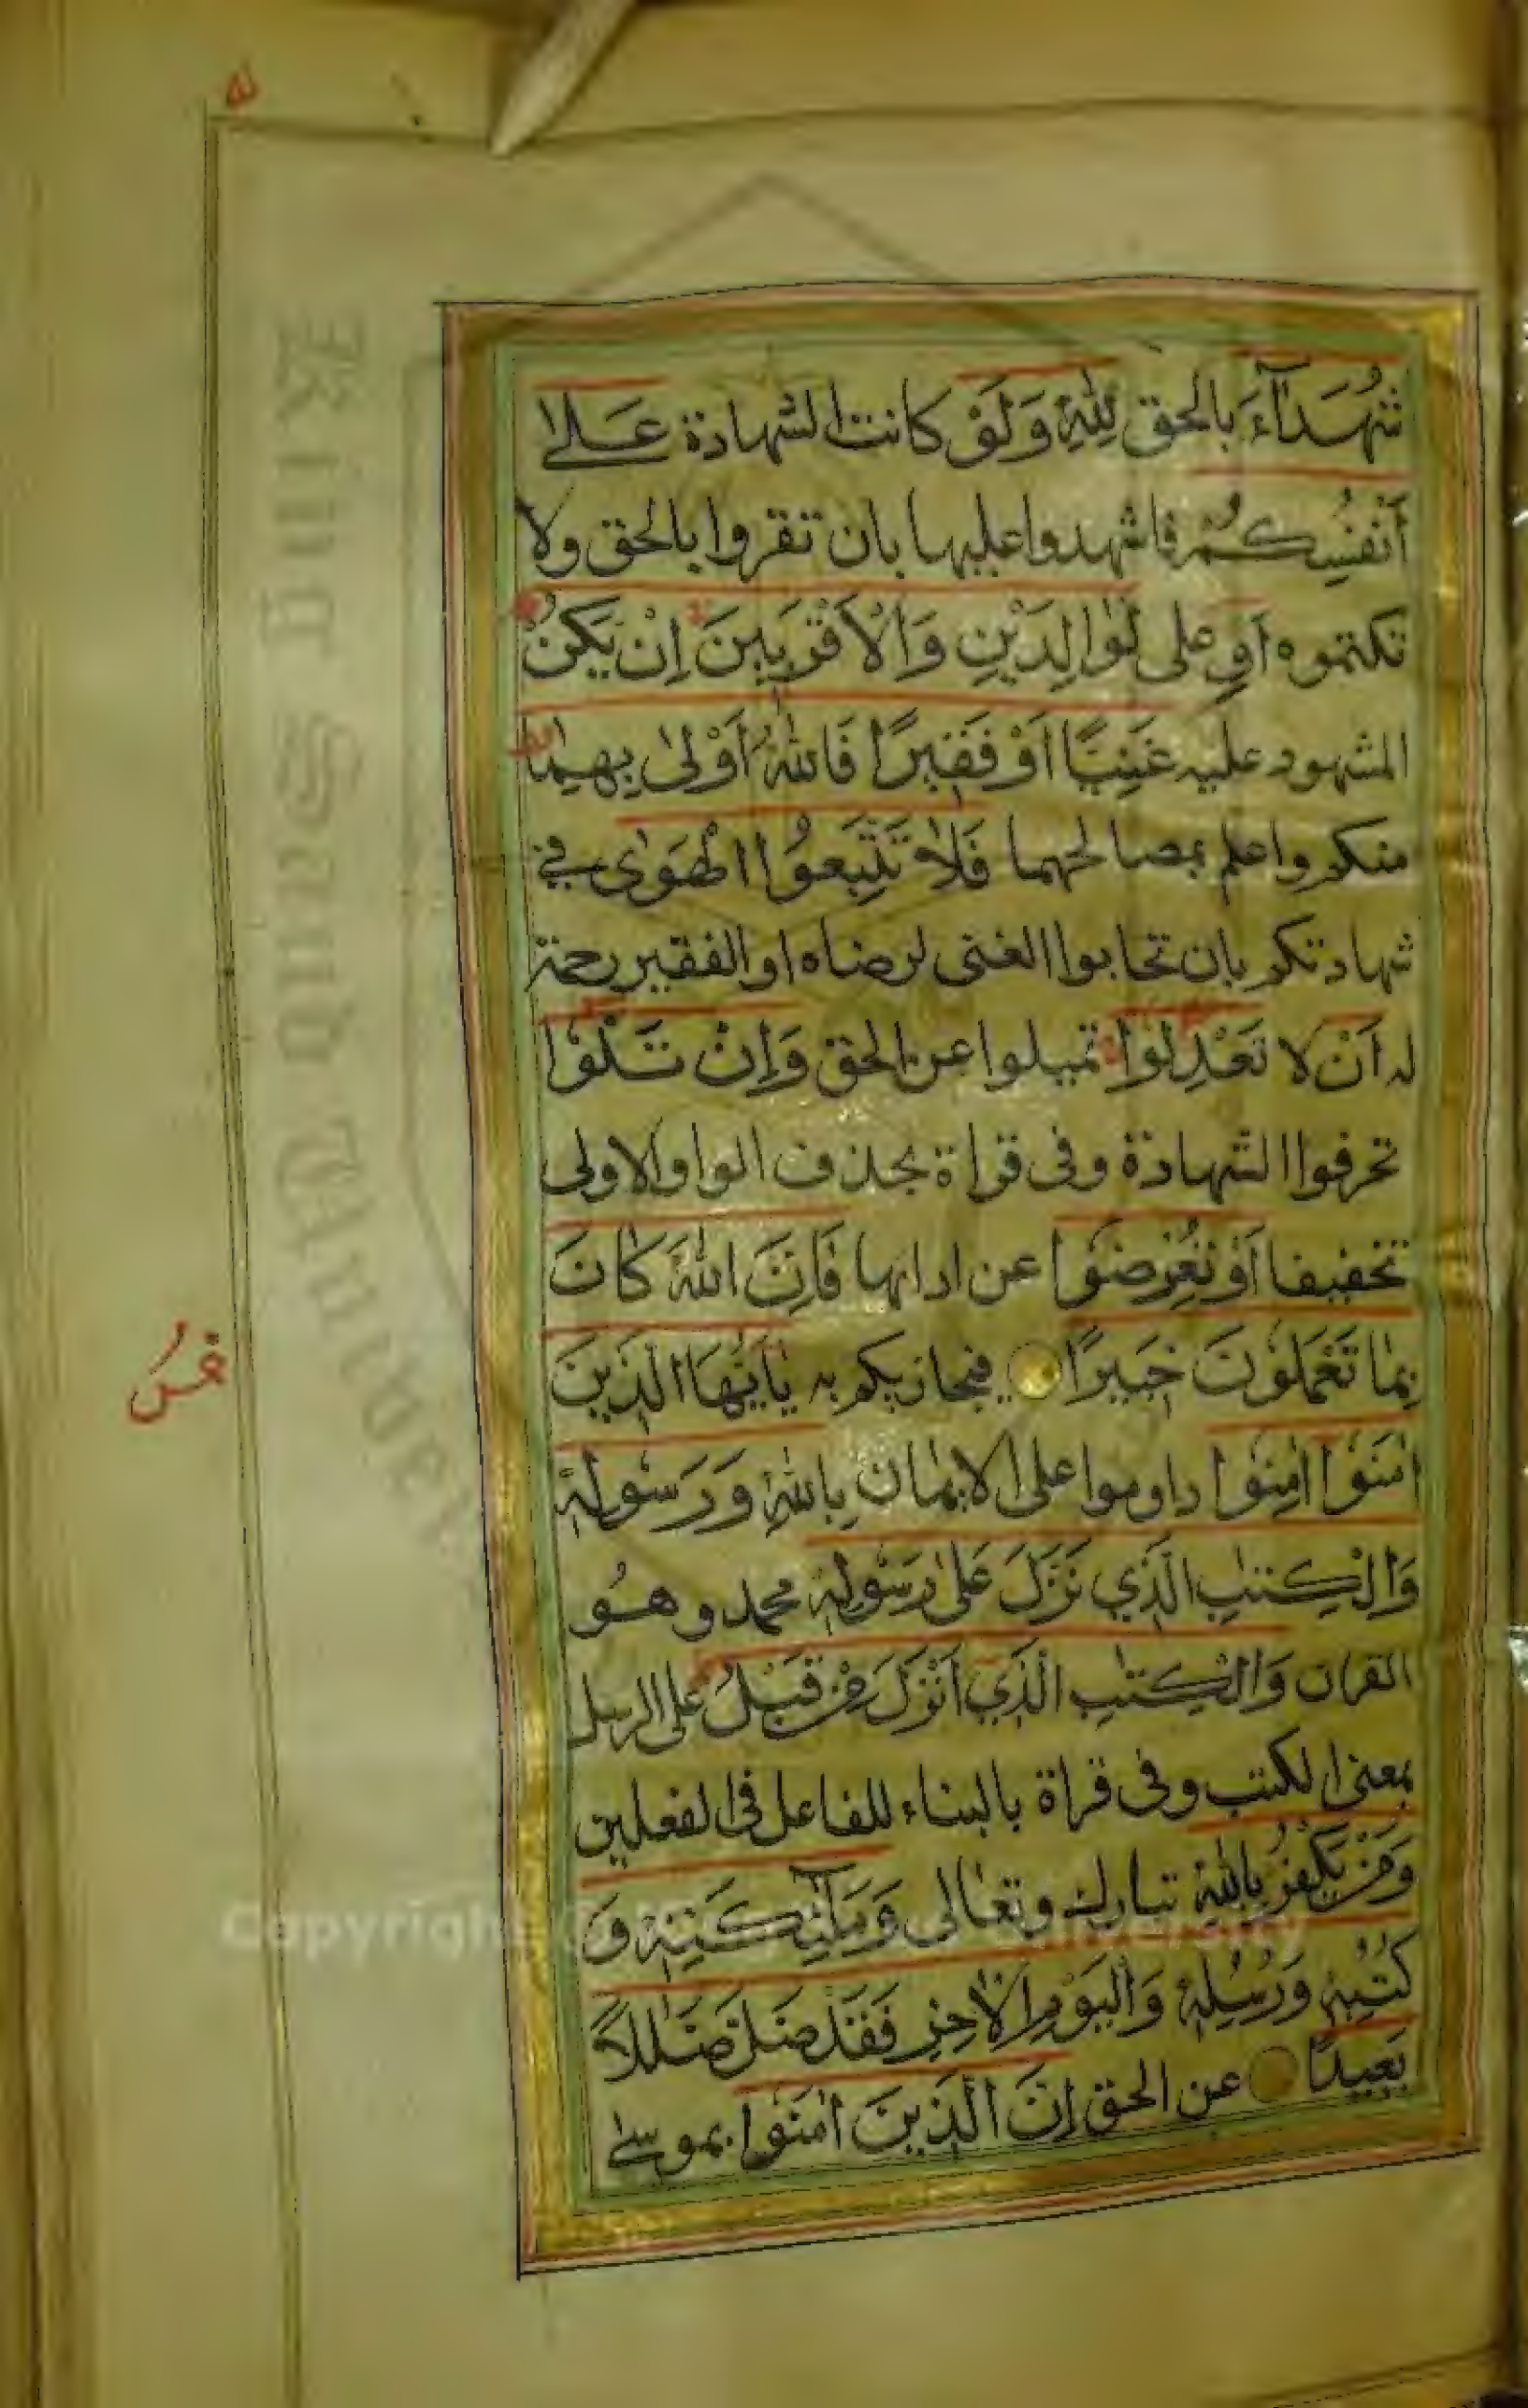 شُهَدَآءَ بالحق لِلّٰهِ وَلَوْ كانت الشهادة عَلٰے
اَنْفُسِكُمْ فاشهدوا عليها بان تقروا بالحق ولا
تكتموه اَوِ على الْوَالِدَيْنِ وَالْاَقْرَبِيْنَ اِنْ يَكُنْ
المشهود عليه غَنِيًّا اَوْ فَقِيْرًا فَاللّٰهُ اَوْلٰى بِهِمَا
منكم واعلم بمصالحهما فَلَا تَتَّبِعُوا الْهَوٰى فے
شهادتكم بان تحابوا الغنى لرضاه او الفقير رحمة
له اَنْ لا تَعْدِلُوْا تميلوا عن الحق وَاِنْ تَلْوٗا
تحرفوا الشهادة وفى قراة بحذف الواو الاولى
تخفيفا اَوْ تُعْرِضُوْا عن ادائها فَاِنَّ اللّٰهَ كَانَ
بِمَا تَعْمَلُوْنَ خَبِيْرًا فيجازيكم به يٰاَيُّهَا الَّذِيْنَ
اٰمَنُوْا اٰمِنُوْا داوموا على الايمان بِاللّٰهِ وَرَسُوْلِهٖ
وَالْكِتٰبِ الَّذِي نَزَّلَ عَلٰى رَسُوْلِهٖ محمد وهو
القران وَالْكِتٰبِ الَّذِي اَنْزَلَ مِنْ قَبْلُ على الرسل
بمعنى الكتب وفى قراة بالبناء للفاعل فى الفعلين
وَمَنْ يَّكْفُرْ بِاللّٰهِ تبارك وتعالى وَمَلٰٓئِكَتِهٖ وَ
كُتُبِهٖ وَرُسُلِهٖ وَالْيَوْمِ الْاٰخِرِ فَقَدْ ضَلَّ ضَلٰلًا
بَعِيْدًا عن الحق اِنَّ الَّذِيْنَ اٰمَنُوْا بموسے
King Saud University
Copyright © King Saud University